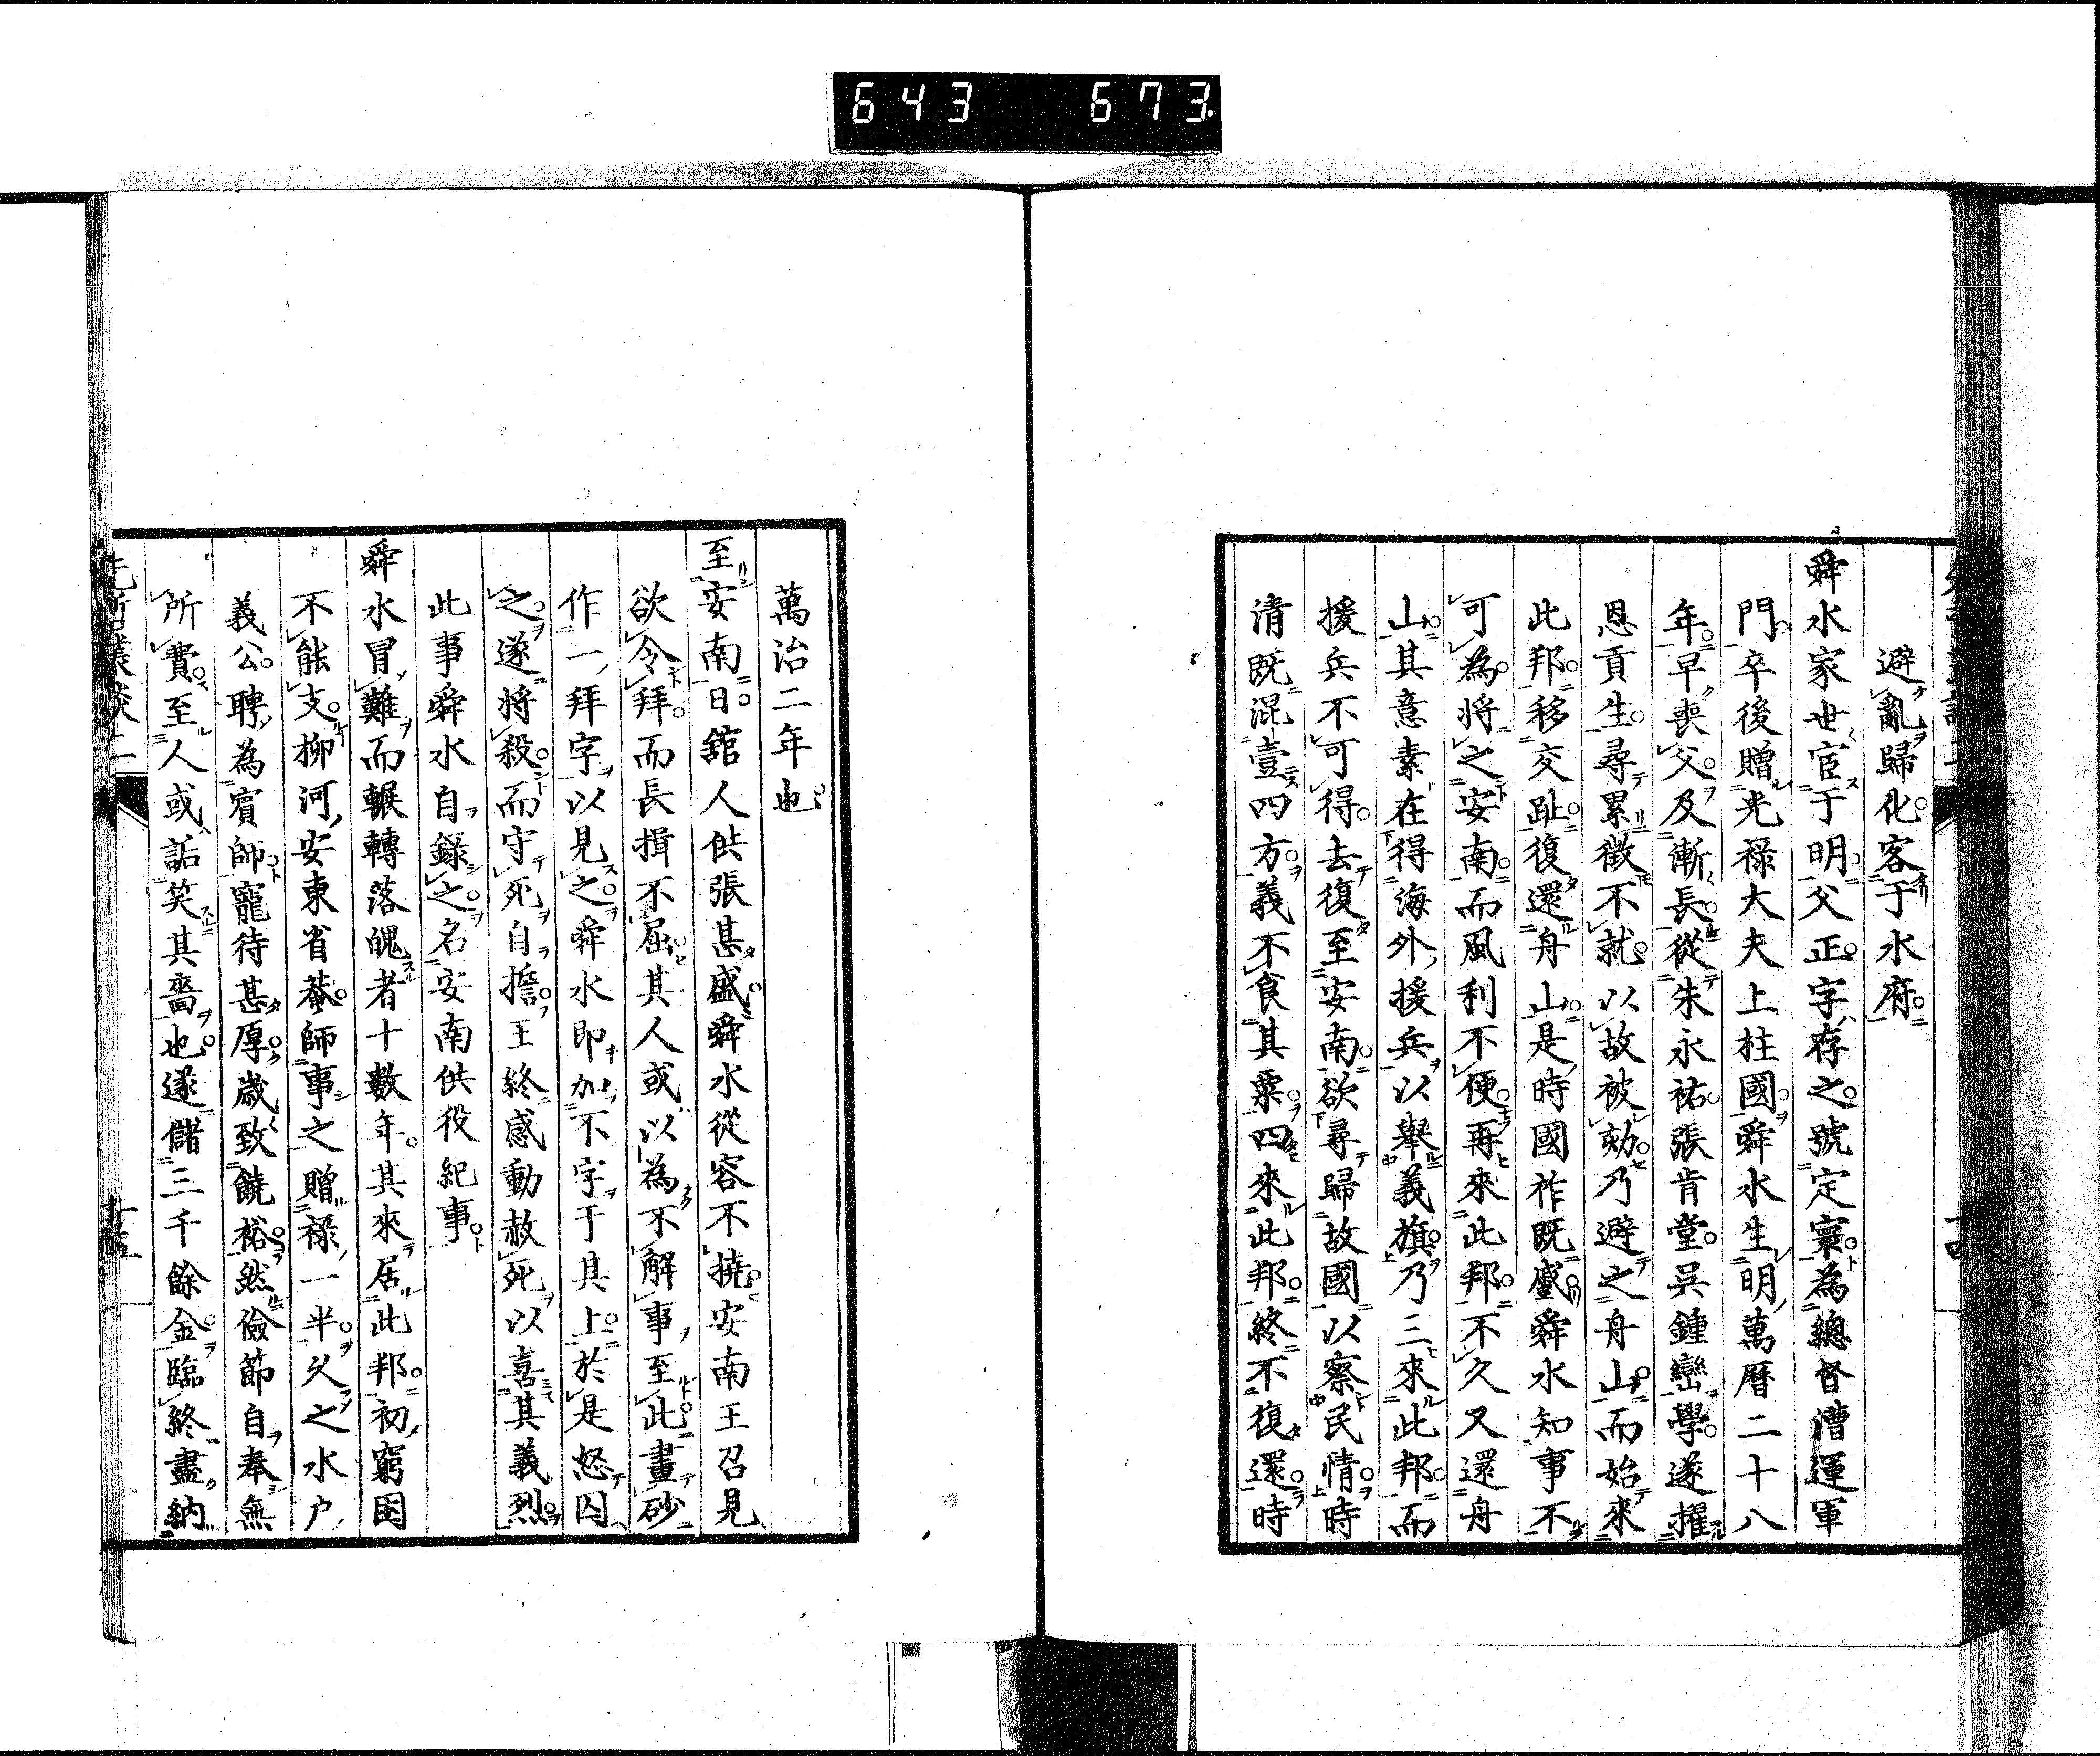 643 673
避亂歸化客于水府
舜水家世宦于明父正字存之號定寰為總督漕運軍
門卒後贈光祿大夫上柱國舜水生明萬曆二十八
年早喪父及漸長從朱永祐張肯堂吳鍾巒學遂擢
恩貢生尋累徵不就以故被劾乃避之舟山而始來
此邦移交趾復還舟山是時國祚既蹙舜水知事不
可為將之安南而風利不便再來此邦不久又還舟
山其意素在得海外援兵以舉義旗乃三來此邦而
援兵不可得去復至安南欲尋歸故國以察民情時
清既混壹四方義不食其粟四來此邦終不復還時
萬治二年也
至安南日館人供張甚盛舜水從容不撓安南王召見
欲令拜而長揖不屈其人或以為不解事至此畫砂
作一拜字以見之舜水即加不字于其上於是怒囚
之遂將殺而守死自擔王終感動赦死以喜其義烈
此事舜水自錄之名安南供役紀事
舜水冒難而輾轉落魄者十數年其來居此邦初窮困
不能支柳河安東省菴師事之贈祿一半久之水户
義公聘為賓師寵待甚厚歲致饒裕然儉節自奉無
所費至人或詬笑其嗇也遂儲三千餘金臨終盡納